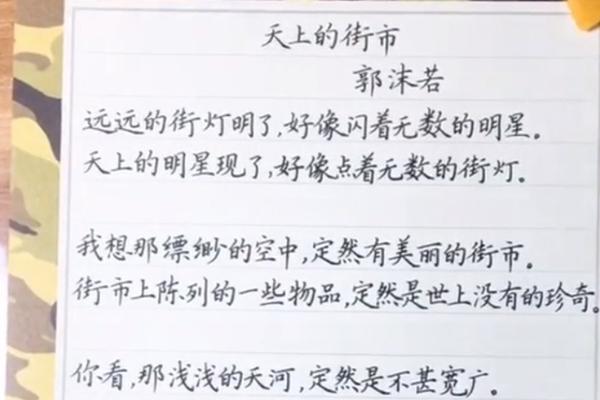 天上的街市
郭沫若
远远的街灯明了,好像闪着无数的明星。
天上的明星现了,好像点着无数的街灯。
我想那缥缈的空中,定然有美丽的街市。
街市上陈列的一些物品,定然是世上没有的珍奇。
你看,那浅浅的天河,定然是不甚宽广。